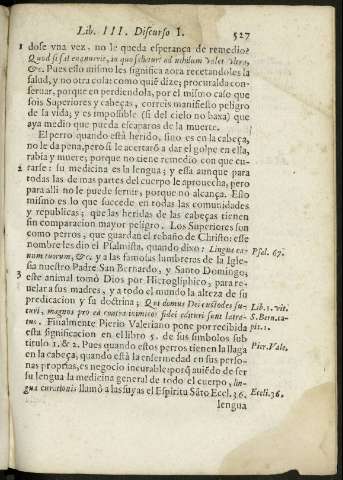 Lib. III. Discurso I. 527
1 dose vna vez, no le queda esperança de remedio?
&c. Pues esto mismo les significa aora recetandoles la
salud, y no otra cosa: como quiē dize; procuralda con-
seruar, porque en perdiendola, por el mismo caso que
sois Superiores y cabeças, correis manifiesto peligro
de la vida; y es impossible (si del cielo no baxa) que
aya medio que pueda escaparos de la muerte.
El perro quando està herido, sino es en la cabeça,
no le da pena, pero si le acertarō a dar el golpe en ella,
rabia y muere; porque no tiene remedio con que cu-
2 rarse: su medicina es la lengua; y essa aunque para
todas las demas partes del cuerpo le aprouecha, pero
para alli no le puede seruir, porque no alcança. Esto
mismo es lo que succede en todas las comunidades
y republicas; que las heridas de las cabeças tienen
sin comparacion mayor peligro. Los Superiores son
como perros; que guardan el rebaño de Christo: este
nombre les dio el Psalmista, quando dixo: Lingua ca-
num tuorum, &c. y a las famosas lumbreras de la Igle-
Psal. 67.
sia nuestro Padre San Bernardo, y Santo Domingo;
3 este animal tomò Dios por Hieroglíphico, para re-
uelar a sus madres, y a todo el mundo la alteza de su
predicacion y su doctrina; Qui domus Dei custodes fu-
turi, magnos pro ea contra inimicos fidei edituri sunt latra-
tus. Finalmente Pierio Valeriano pone por recibida
Lib. 1. vit.
S. Bern. ca-
pit. 1.
esta significacion en el libro 5. de sus simbolos sub
titulo 1. & 2. Pues quando estos perros tienen la llaga
Pier. Vale.
en la cabeça, quando està la enfermedad en sus perso-
nas proprias, es negocio incurable: porq̄ auiēdo de ser
su lengua la medicina general de todo el cuerpo, lin-
gua curationis llamò a las suyas el Espiritu Sāto Eccl. 36.
Eccli. 36.
lengua